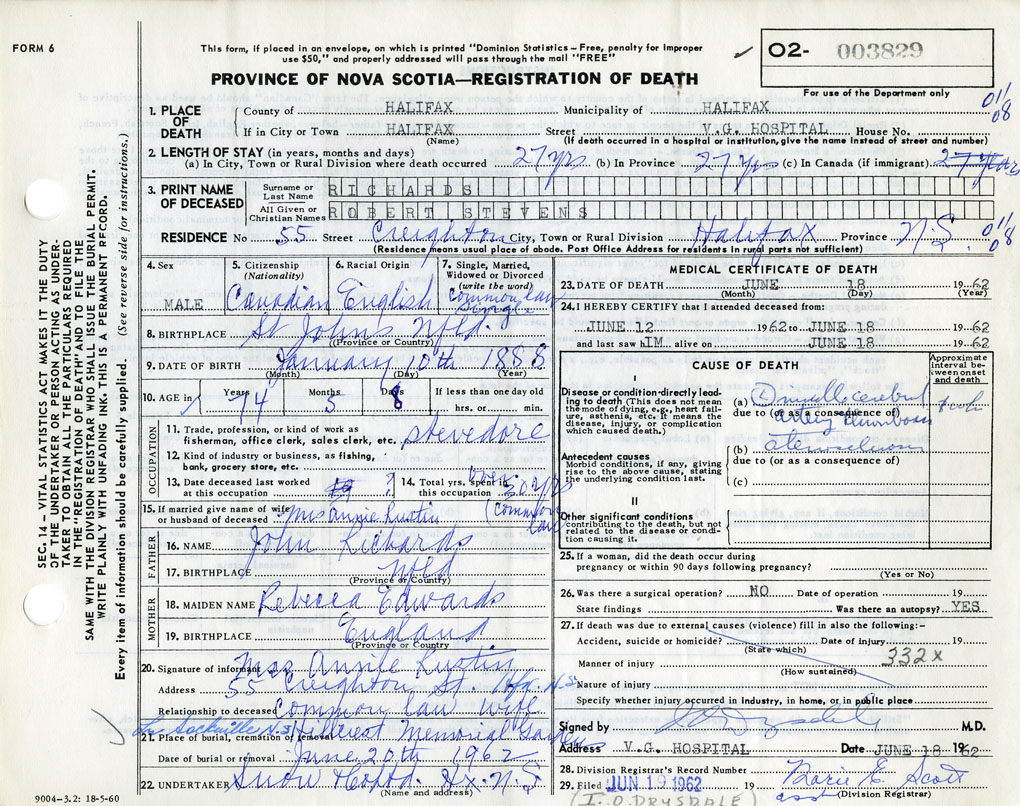 FORM 6
This form, if placed in an envelope, on which is printed "Dominion Statistics – Free, penalty for improper
use $50," and properly addressed will pass through the mail "FREE"
PROVINCE OF NOVA SCOTIA—REGISTRATION OF DEATH
O2- 003829
For use of the Department only
011/08
1. PLACE OF DEATH
County of HALIFAX Municipality of HALIFAX
If in City or Town HALIFAX Street V.G. HOSPITAL House No.
(Name) (If death occurred in a hospital or institution, give the name instead of street and number)
2. LENGTH OF STAY (in years, months and days)
(a) In City, Town or Rural Division where death occurred 27 yrs (b) In Province 27 yrs (c) In Canada (if immigrant) 27 years
3. PRINT NAME OF DECEASED
Surname or Last Name RICHARDS
All Given or Christian Names ROBERT STEVENS
RESIDENCE No 55 Street Creighton City, Town or Rural Division Halifax Province N.S. 011/08
(Residence means usual place of abode. Post Office Address for residents in rural parts not sufficient)
4. Sex MALE
5. Citizenship (Nationality) Canadian
6. Racial Origin English
7. Single, Married, Widowed or Divorced (write the word) Common law Single
8. BIRTHPLACE St John's Nfld.
(Province or Country)
9. DATE OF BIRTH January 10th 1888
(Month) (Day) (Year)
10. AGE in Years 74 Months 5 Days 8 If less than one day old hrs. or min.
OCCUPATION
11. Trade, profession, or kind of work as fisherman, office clerk, sales clerk, etc. stevedore
12. Kind of industry or business, as fishing, bank, grocery store, etc.
13. Date deceased last worked at this occupation 19 ?
14. Total yrs. spent in this occupation over 30 yrs
15. If married give name of wife or husband of deceased Mrs Annie Rustin (common law
FATHER
16. NAME John Richards
17. BIRTHPLACE Nfld
(Province or Country)
MOTHER
18. MAIDEN NAME Rebecca Edwards
19. BIRTHPLACE England
(Province or Country
20. Signature of informant Mrs Annie Rustin
Address 55 Creighton St. Hfx N.S
Relationship to deceased Common law wife
Lr Sackville N.S
21. Place of burial, cremation or removal Hillcrest Memorial Gardens
Date of burial or removal June 20th 1962
22. UNDERTAKER Snow Co Ltd. Hx. N.S
(Name and address)
9004-3.2: 18-5-60
SEC. 14 – VITAL STATISTICS ACT MAKES IT THE DUTY
OF THE UNDERTAKER OR PERSON ACTING AS UNDER-
TAKER TO OBTAIN ALL THE PARTICULARS REQUIRED
IN THE "REGISTRATION OF DEATH" AND TO FILE THE
SAME WITH THE DIVISION REGISTRAR WHO SHALL ISSUE THE BURIAL PERMIT.
WRITE PLAINLY WITH UNFADING INK. THIS IS A PERMANENT RECORD.
Every item of information should be carefully supplied. (See reverse side for instructions.)
MEDICAL CERTIFICATE OF DEATH
23. DATE OF DEATH JUNE 18 1962
(Month) (Day) (Year)
24. I HEREBY CERTIFY that I attended deceased from:
JUNE 12 1962 to JUNE 18 1962
and last saw hIM alive on JUNE 18 1962
CAUSE OF DEATH
Approximate interval between onset and death
I
Disease or condition directly leading to death (This does not mean the mode of dying, e.g., heart failure, asthenia, etc. It means the disease, injury, or complication which caused death.)
(a) middle cerebral
due to (or as a consequence of)
artery thrombosis
(b)
due to (or as a consequence of)
(c)
Antecedent causes
Morbid conditions, if any, giving rise to the above cause, stating the underlying condition last.
II
Other significant conditions contributing to the death, but not related to the disease or condition causing it.
25. If a woman, did the death occur during pregnancy or within 90 days following pregnancy?
(Yes or No)
26. Was there a surgical operation? NO Date of operation 19
State findings Was there an autopsy? YES
27. If death was due to external causes (violence) fill in also the following:-
Accident, suicide or homicide? Date of injury 19
(State which)
Manner of injury 332x
(How sustained)
Nature of injury
Specify whether injury occurred in industry, in home, or in public place
Signed by M.D.
Address V.G. HOSPITAL Date JUNE 18 1962
28. Division Registrar's Record Number
29. Filed JUN 19 1962 19 Marie E. Scott
asst (Division Registrar)
(I. O. DRYSDALE)